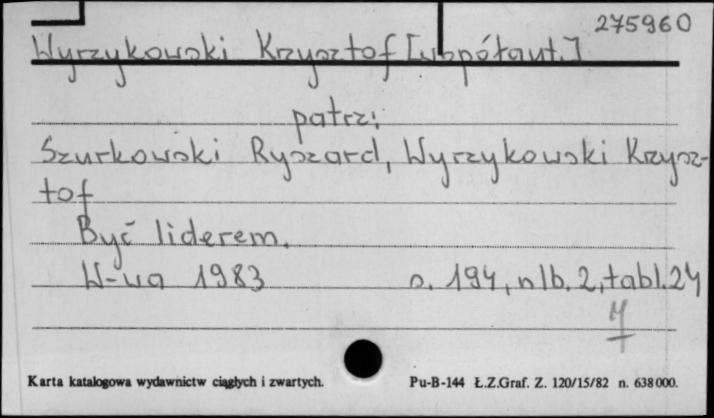 275960
Wyrzykowski Krzysztof [współaut.]
patrz:
Szurkowski Ryszard, Wyrzykowski Krzysz-
tof
Być liderem.
W-wa 1983 s. 194, nlb. 2, tabl. 24
Karta katalogowa wydawnictw ciągłych i zwartych. Pu-B-144 Ł.Z.Graf. Z. 120/15/82 n. 638000.